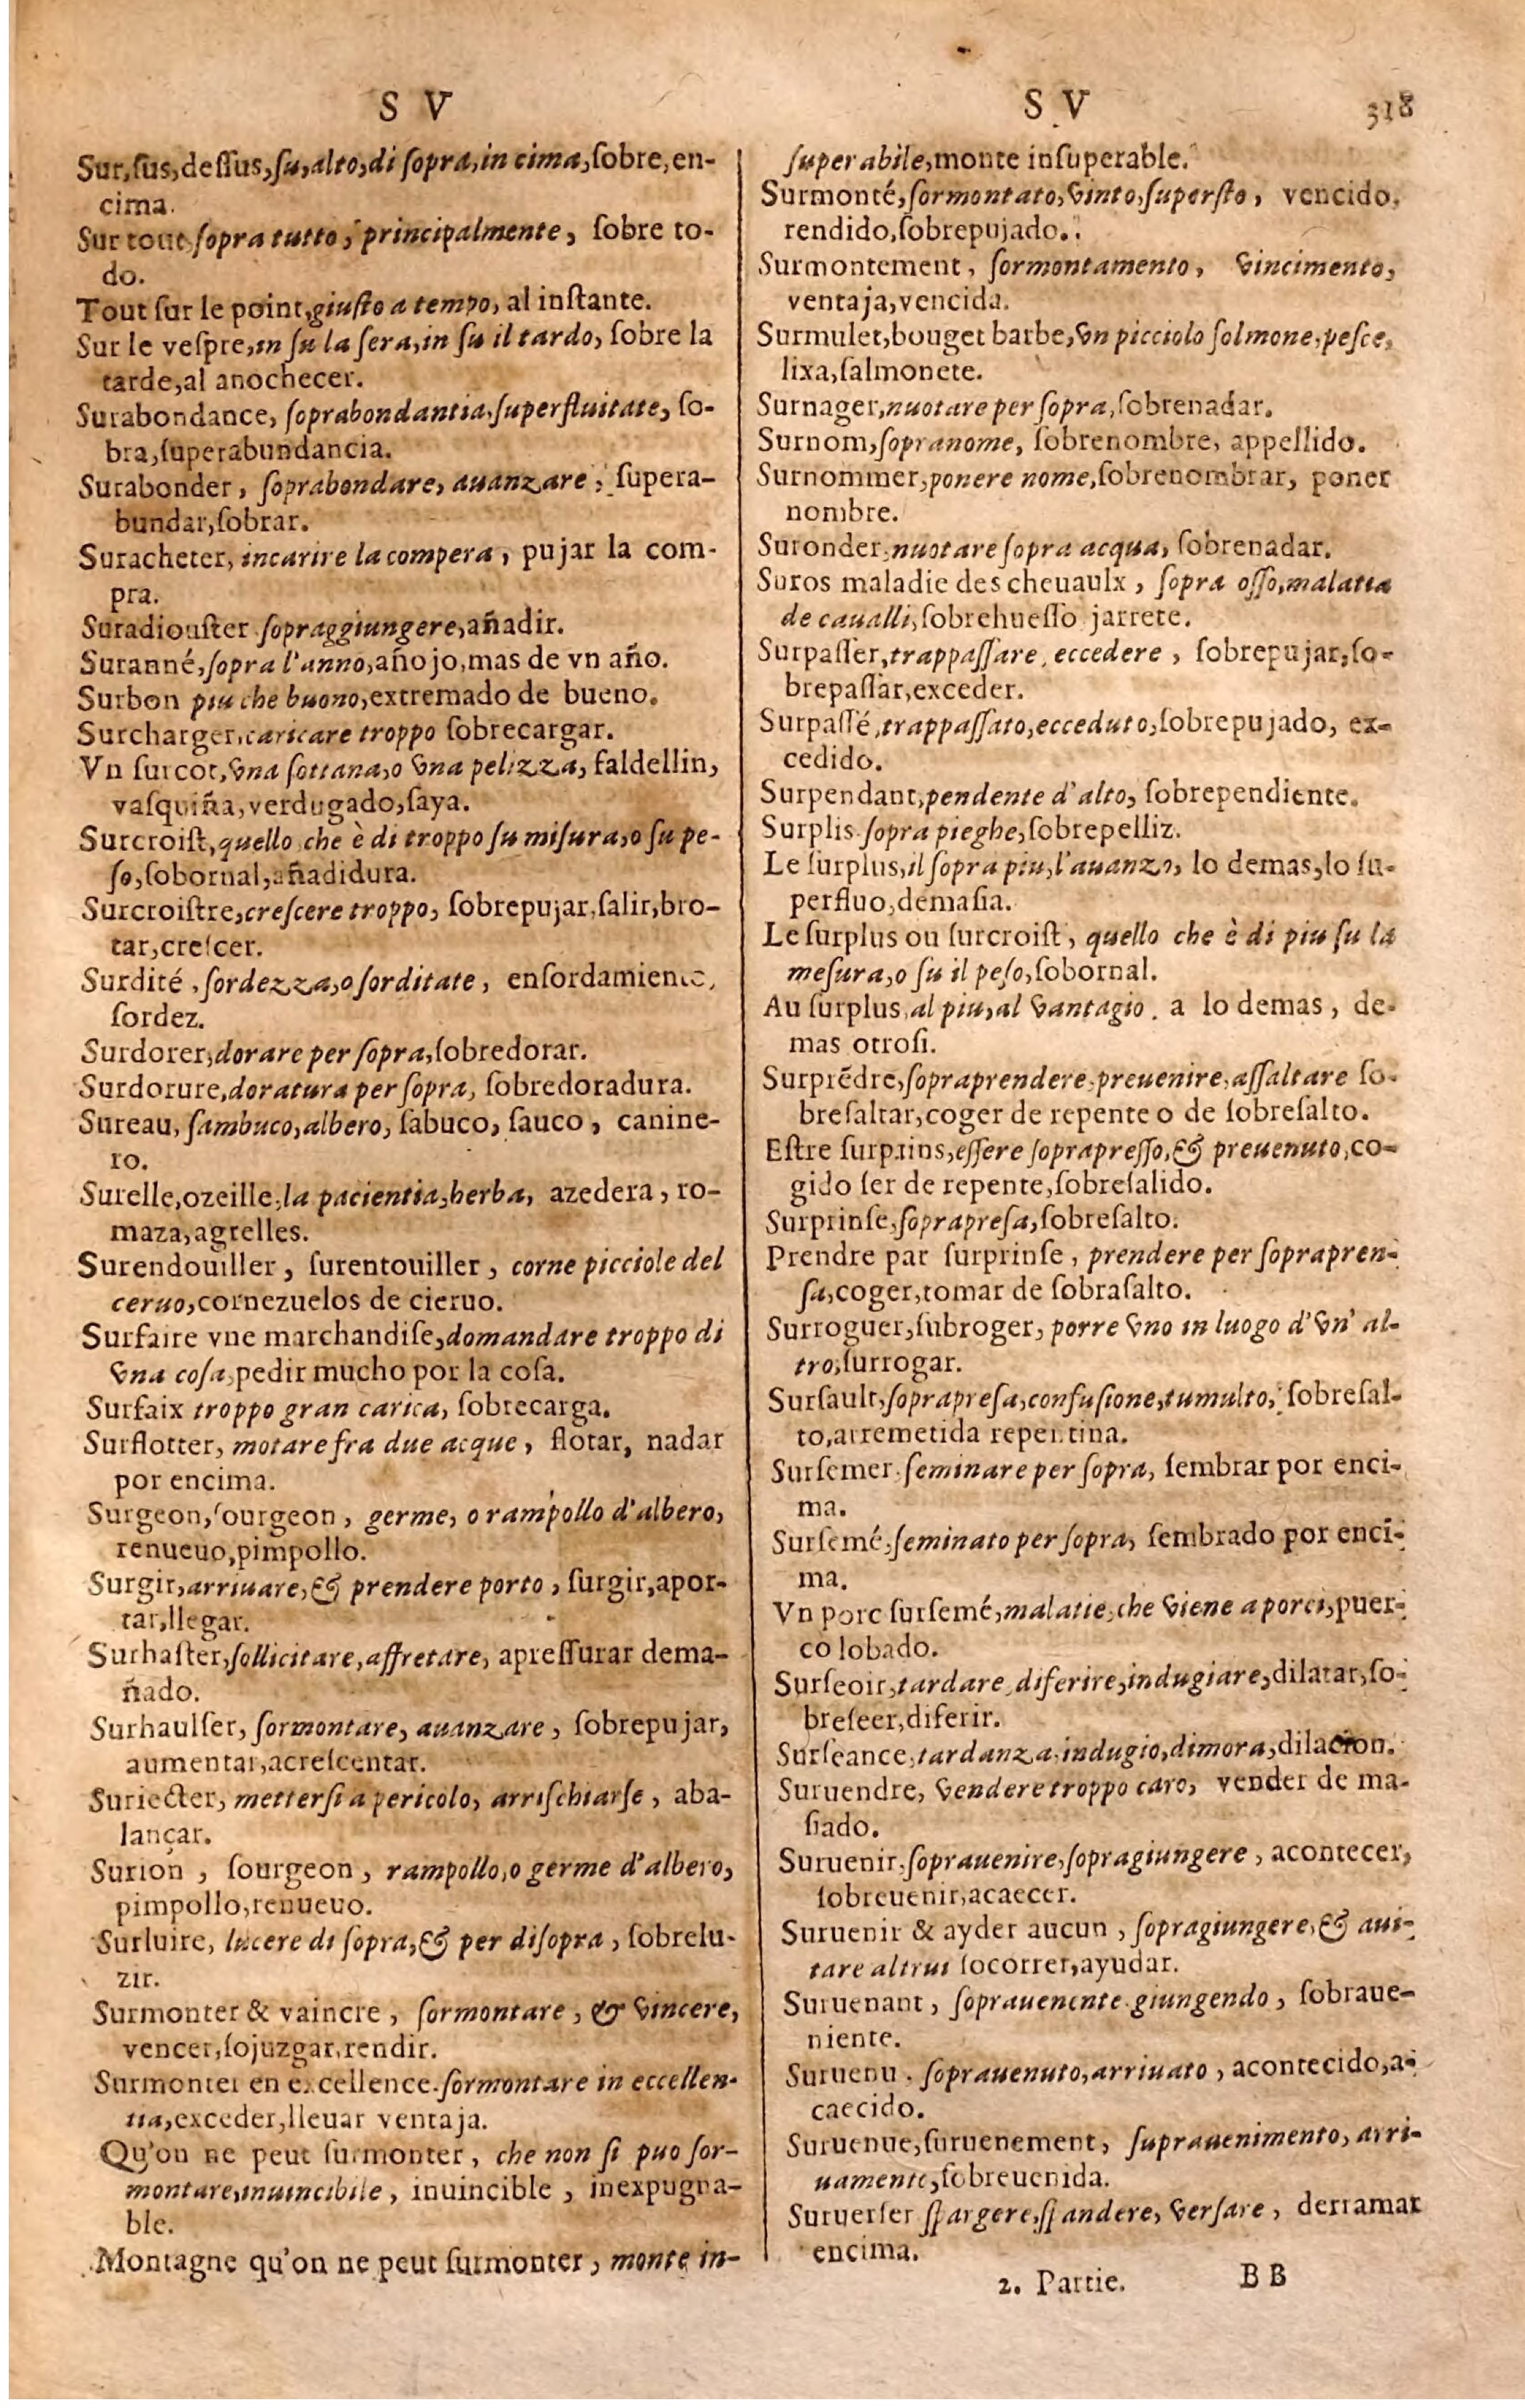 S V
Sur, sus, deſſus, ſu, alto, di ſopra, in cima, ſobre, en-
cima.
Sur tout, ſopra tutto, principalmente, ſobre to-
do.
Tout ſur le point, giuſto a tempo, al inſtante.
Sur le veſpre, in ſu la ſera, in ſu il tardo, ſobre la
tarde, al anochecer.
Surabondance, ſoprabondantia, ſuperfluitate, ſo-
bra, ſuperabundancia.
Surabonder, ſoprabondare, auanzare, ſupera-
bundar, ſobrar.
Suracheter, incarire la compera, pujar la com-
pra.
Suradiouſter ſopraggiungere, añadir.
Suranné, ſopra l'anno, añojo, mas de vn año.
Surbon piu che buono, extremado de bueno.
Surcharger, caricare troppo ſobrecargar.
Vn ſurcot, vna ſottana, o vna pelizza, faldellin,
vaſquiña, verdugado, ſaya.
Surcroiſt, quello che è di troppo ſu miſura, o ſu pe-
ſo, ſobornal, añadidura.
Surcroiſtre, creſcere troppo, ſobrepujar, ſalir, bro-
tar, creſcer.
Surdité, ſordezza, o ſorditate, enſordamiento,
ſordez.
Surdorer, dorare per ſopra, ſobredorar.
Surdorure, doratura per ſopra, ſobredoradura.
Sureau, ſambuco, albero, ſabuco, ſauco, canine-
ro.
Surelle, ozeille, la pacientia, herba, azedera, ro-
maza, agrelles.
Surendouiller, ſurentouiller, corne picciole del
ceruo, cornezuelos de cieruo.
Surfaire vne marchandiſe, domandare troppo di
vna coſa, pedir mucho por la coſa.
Surfaix troppo gran carica, ſobrecarga.
Surflotter, motare fra due acque, flotar, nadar
por encima.
Surgeon, ſourgeon, germe, o rampollo d'albero,
renueuo, pimpollo.
Surgir, arriuare, & prendere porto, ſurgir, apor-
tar, llegar.
Surhaſter, ſollicitare, affretare, apreſſurar dema-
ñado.
Surhaulſer, ſormontare, auanzare, ſobrepujar,
aumentar, acreſcentar.
Suriecter, metterſi a pericolo, arriſchiarſe, aba-
lançar.
Surion, ſourgeon, rampollo, o germe d'albero,
pimpollo, renueuo.
Surluire, lucere di ſopra, & per diſopra, ſobrelu-
zir.
Surmonter & vaincre, ſormontare, & vincere,
vencer, ſojuzgar, rendir.
Surmonter en excellence. ſormontare in eccellen-
tia, exceder, lleuar ventaja.
Qu'on ne peut ſurmonter, che non ſi puo ſor-
montare, inuincibile, inuincible, inexpugna-
ble.
Montagne qu'on ne peut ſurmonter, monte in-
S V 318
ſuperabile, monte inſuperable.
Surmonté, ſormontato, vinto, ſuperſto, vencido,
rendido, ſobrepujado.
Surmontement, ſormontamento, vincimento,
ventaja, vencida.
Surmulet, bouget barbe, vn picciolo ſolmone, peſce,
lixa, ſalmonete.
Surnager, nuotare per ſopra, ſobrenadar.
Surnom, ſopranome, ſobrenombre, appellido.
Surnommer, ponere nome, ſobrenombrar, poner
nombre.
Suronder, nuotare ſopra acqua, ſobrenadar.
Suros maladie des cheuaulx, ſopra oſſo, malatia
de caualli, ſobrehueſſo jarrete.
Surpaſſer, trappaſſare, eccedere, ſobrepujar, ſo-
brepaſſar, exceder.
Surpaſſé, trappaſſato, ecceduto, ſobrepujado, ex-
cedido.
Surpendant, pendente d'alto, ſobrependiente.
Surplis ſopra pieghe, ſobrepelliz.
Le ſurplus, il ſopra piu, l'auanzo, lo demas, lo ſu-
perfluo, demaſia.
Le ſurplus ou ſurcroiſt, quello che è di piu ſu la
meſura, o ſu il peſo, ſobornal.
Au ſurplus, al piu, al vantagio. a lo demas, de-
mas otroſi.
Surprēdre, ſopraprendere, preuenire, aſſaltare ſo-
breſaltar, coger de repente o de ſobreſalto.
Eſtre ſurprins, eſſere ſoprapreſſo, & preuenuto, co-
gido ſer de repente, ſobreſalido.
Surprinſe, ſoprapreſa, ſobreſalto.
Prendre par ſurprinſe, prendere per ſoprapren-
ſa, coger, tomar de ſobraſalto.
Surroguer, ſubroger, porre vno in luogo d'vn' al-
tro, ſurrogar.
Surſault, ſoprapreſa, confuſione, tumulto, ſobreſal-
to, arremetida repentina.
Surſemer, ſeminare per ſopra, ſembrar por enci-
ma.
Surſemé, ſeminato per ſopra, ſembrado por enci-
ma.
Vn porc ſurſemé, malatie, che viene a porci, puer-
co lobado.
Surſeoir, tardare, diferire, indugiare, dilatar, ſo-
breſeer, diferir.
Surſeance, tardanza, indugio, dimora, dilacion.
Suruendre, vendere troppo caro, vender de ma-
ſiado.
Suruenir, ſoprauenire, ſopragiungere, acontecer,
ſobreuenir, acaecer.
Suruenir & ayder aucun, ſopragiungere, & aui-
tare altrui ſocorrer, ayudar.
Suruenant, ſoprauenente giungendo, ſobraue-
niente.
Suruenu. ſoprauenuto, arriuato, acontecido, a-
caecido.
Suruenue, ſuruenement, ſuprauenimento, arri-
uamente, ſobreuenida.
Suruerſer ſpargere, ſpandere, verſare, derramar
encima.
2. Partie. B B